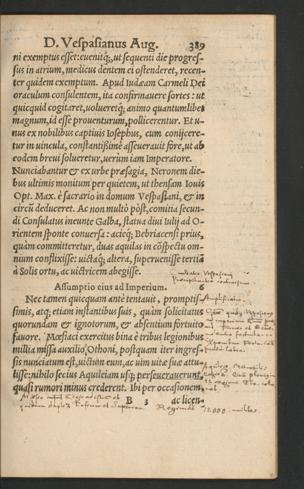 D. Vespasianus Aug. 389
ni exemptus esset: euenitq́;, ut sequenti die progres-
sus in atrium, medicus dentem ei ostenderet, recen-
ter quidem exemptum. Apud Iudæam Carmeli Dei
oraculum consulentem, ita confirmauere sortes: ut
quicquid cogitaret, uolueretq́; animo quantumlibet
magnum, id esse prouenturum, pollicerentur. Et u-
nus ex nobilibus captiuis Iosephus, cum conijcere-
tur in uincula, constantißimè asseuerauit fore, ut ab
eodem breui solueretur, uerùm iam Imperatore.
Nunciabantur & ex urbe præsagia, Neronem die-
bus ultimis monitum per quietem, ut thensam Iouis
Opt. Max. è sacrario in domum Vespasiani, & in
circũ deduceret. Ac non multò pòst, comitia secun-
di Consulatus ineunte Galba, statua diui Iulij ad O-
rientem sponte conuersa: acieq́; Bebriacensi prius,
quàm committeretur, duas aquilas in cõspectu om-
nium conflixisse: uictaq́; altera, superuenisse tertiã
à Solis ortu, ac uictricem abegisse.
Assumptio eius ad Imperium. 6
Nec tamen quicquam antè tentauit, promptis-
simis, atq; etiam instantibus suis, quàm solicitatus
quorundam & ignotorum, & absentium fortuito
fauore. Mœsiaci exercitus bina è tribus legionibus
millia missa auxilio Othoni, postquam iter ingres-
sis nunciatum est, uictum eum, ac uim uitæ suæ attu-
lisse: nihilo secius Aquileiam usq; perseuerauerunt,
quasi rumori minus crederent. Ibi per occasionem,
B 3 ac licen-